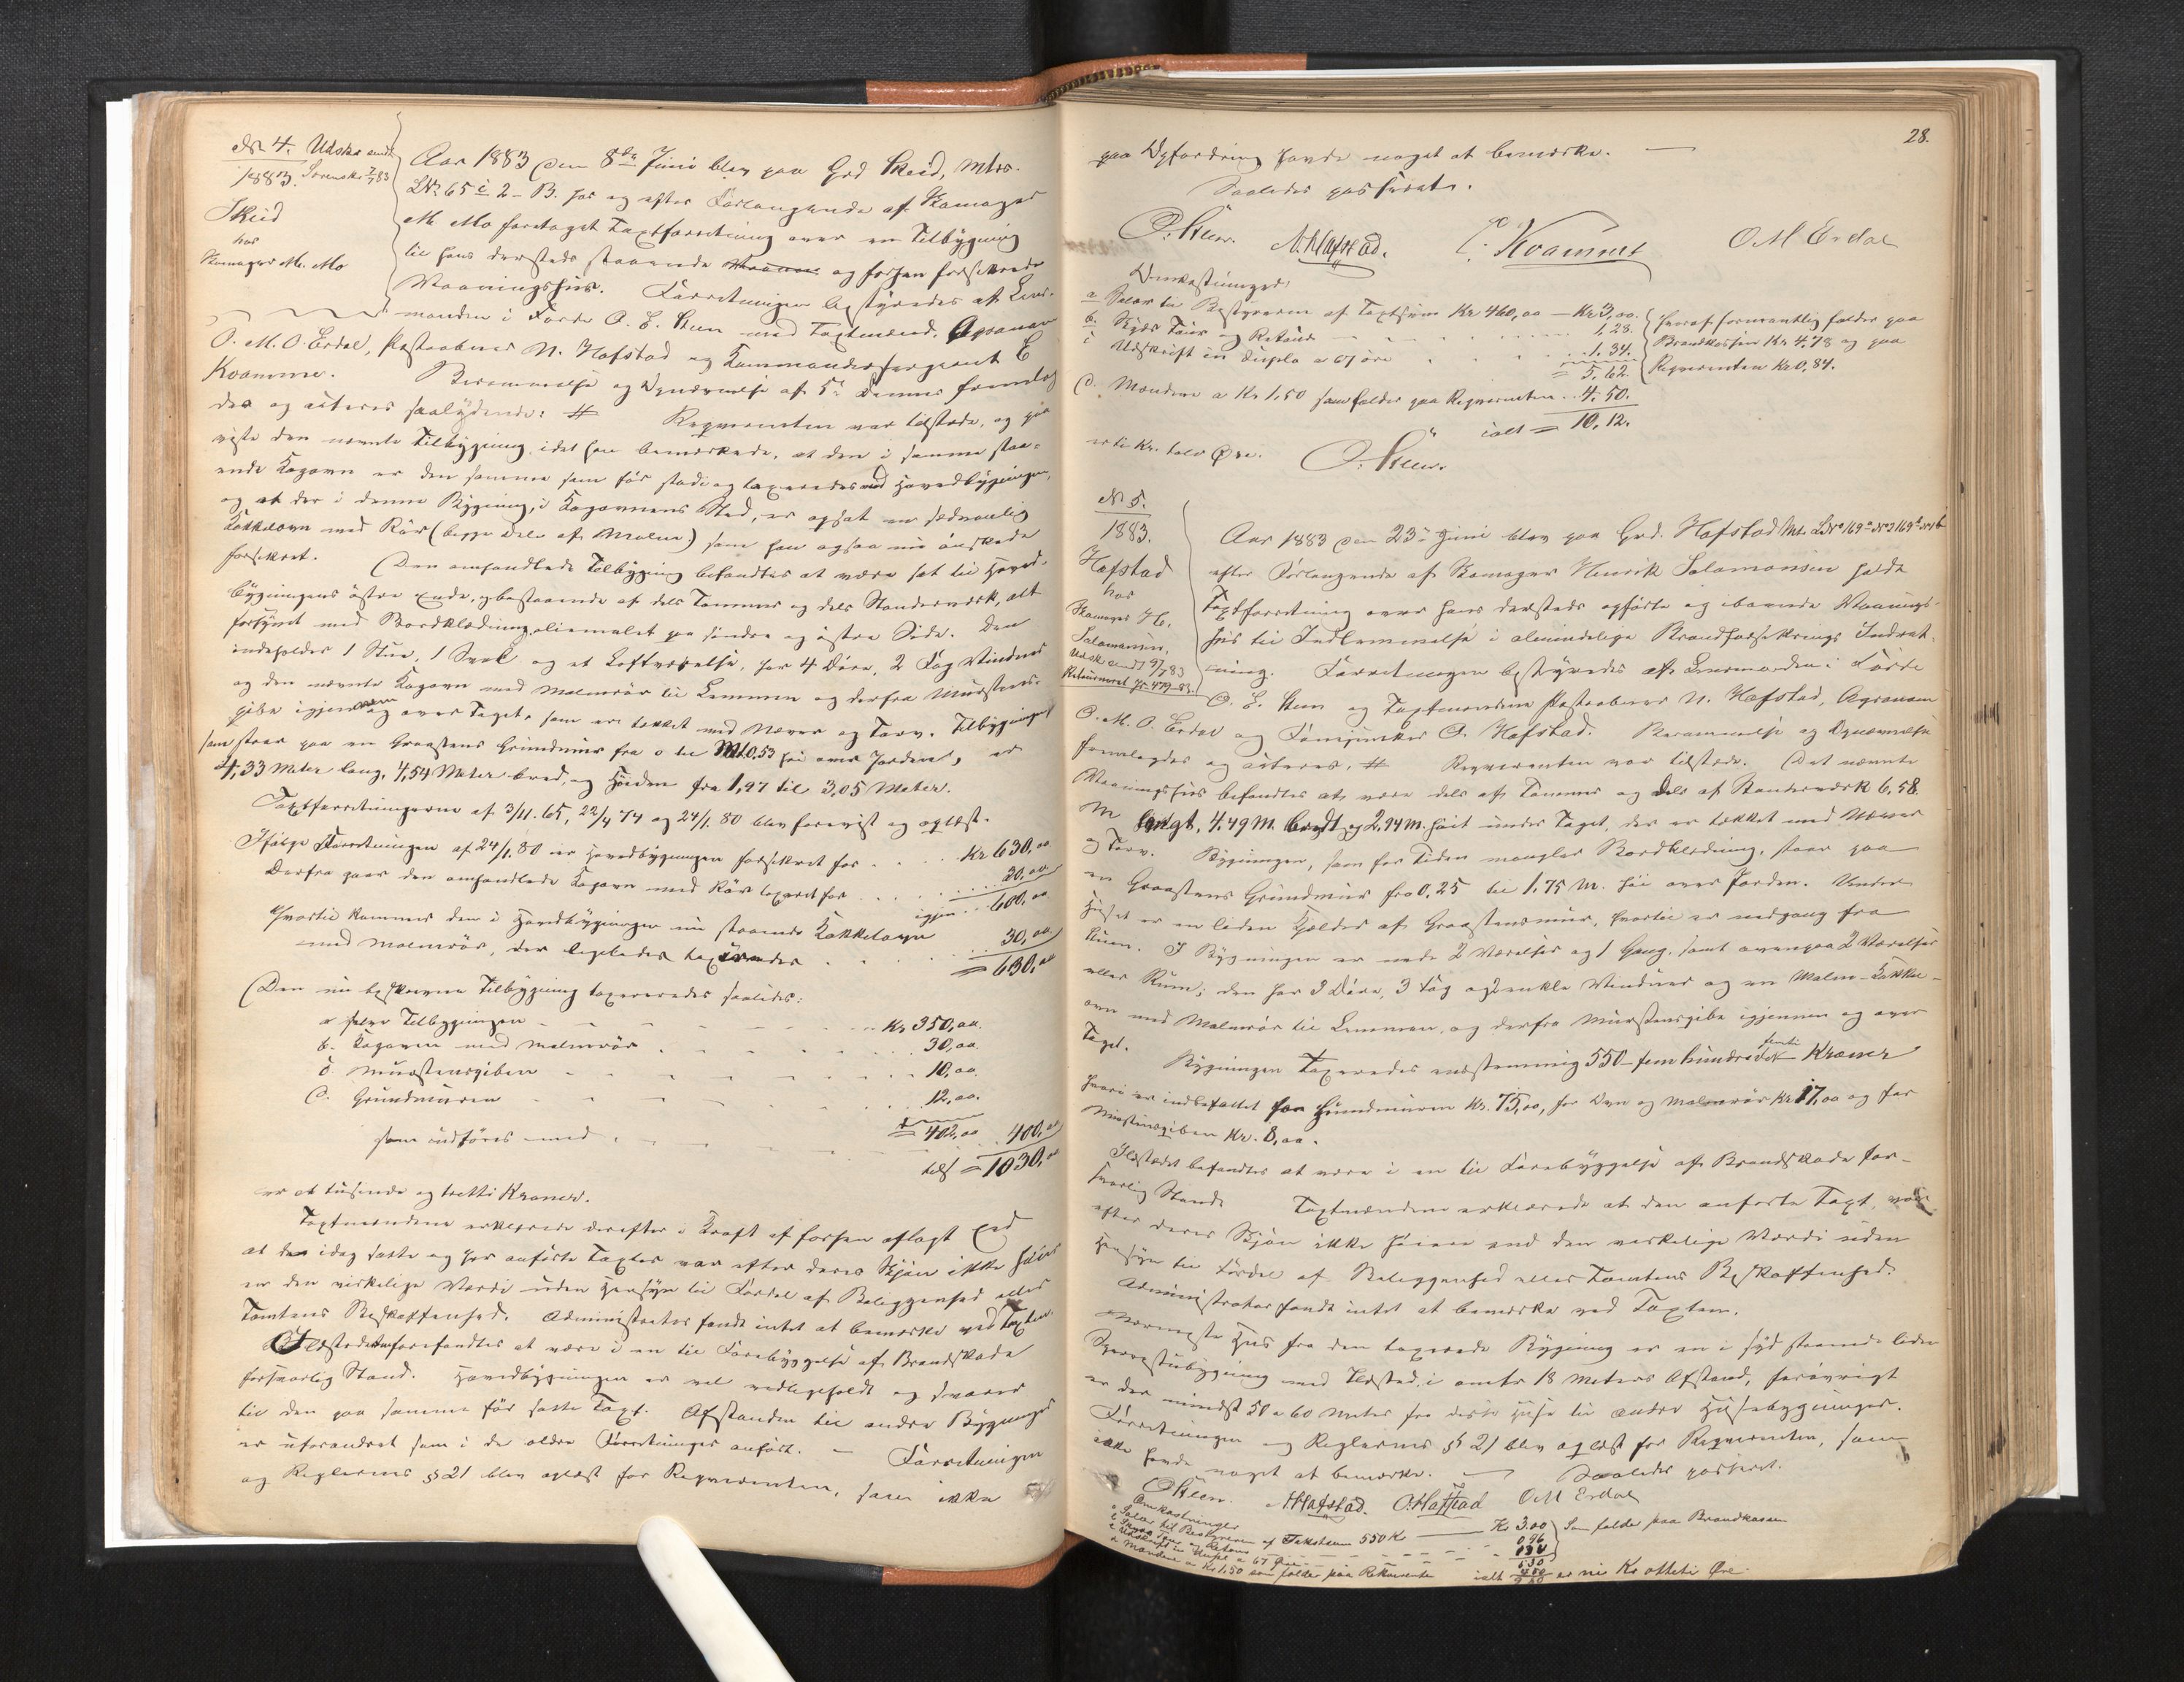 No 4. Udskr. sendt
1883. Sorenskr. 7/7 83
Skeid
hos
Skomager M. Mo
Aar 1883 den 8de Juni blev paa Grd Skeid, Mtr.
LNo 65 i 2 - B. hos og efter Forlangende af Skomager
M. Mo foretaget Taxtforretning over en Tilbygning
til hans dersteds staaende og forhen forsikrede
Vaaningshus. Forretningen bestyredes af Lens-
manden i Førde O. L. Steen med Taxtmænd. Agronom
O. M. O. Erdal, Postaabner N. Hafstad og Kommandersergeant E
Kvamme. Berammelse og Opnævnelse af 5te dennes fremlag-
des og aiteres saalydende: # Reqvirenten var tilstede, og paa-
viste den nævnte Tilbygning, idet han bemærkede, at den i samme staa-
ende Kogovn er den samme som før stod og taxeredes med Hovedbygningen,
og at der i denne Bygning, i Kogovnens Sted, er opsat en sedvanlig
Kakkelovn med Rör (begge dele af Malm) som han ogsaa nu önskede
forsikret. Den omhandlede Tilbygning befandtes at være sat til Hoved-
bygningens östre Ende, og bestaaende af dels Tømmer og dels Standerværk, alt
forsynet med Bordklædning, oliemalet paa söndre og östre Side. Den
indeholder 1 Stue, 1 Sval og et Loftværelse, har 4 Döre, 2 Fag Vinduer
og den nævnte Kogovn med Malmrör til Lemmen og derfra Murstens-
pibe igjennem og over Taget, som er tækket med Næver og Torv. Tilbygningen
som staar paa en Graastens Grundmur fra 0 til Mt 0,53 høi over Jorden, er
4,33 Meter lang, 4,54 Meter bred, og Höiden fra 1,97 til 3,05 Meter.
Taxtforretningerne af 3/11. 65, 22/4 74 og 24/1. 80 blev forevist og oplæst.
Ifølge Forretningen af 24/1. 80 er Hovedbygningen forsikret for . . . Kr 630,00
Derfra gaar den omhandlede Kogovn med Rör taxeret for . . . 30,00
igjen . . 600,00
Hvortil kommer den i Hovedbygningen nu staaende Kakkelovn
med Malmrör, der ligeledes taxeredes . . . 30,00
= 630,00
Den nu beskrevne Tilbygning taxeredes saaledes:
a selve Tilbygningen - - - Kr 350,00.
b. Kogovnen med Malmrör - - - 30,00.
c. Murstenspiben - - - 10,00.
d. Grundmuren - - - 12,00.
= 402,00
som udføres med . - - 400,00
tils = 1030,00
er et tusinde og tretti Kroner.
Taxtmændene erklærede derefter i Kraft af forhen aflagt Eed
at den idag satte og her anførte Taxter var efter deres Skjøn ikke høiere
en den virkelige Værdi uden Hensyn til Fordel af Beliggenhed eller
Tomtens Beskaffenhed. Administrator fandt intet at bemærke ved Taxten.
Ildstedet forefandtes at være i en til Forebyggelse af Brandskade
forsvarlig Stand. Hovedbygningen er vel vedligeholdt og svarer
til den paa samme før satte Taxt. Afstanden til andre Bygninger
er uforandret som i de ældre Forretninger anført. - Forretningen
og Reglernes § 21 blev oplæst for Reqvirenten, som ikke
28.
paa Opfordring havde noget at bemærke. -
Saaledes passerede.
O. Steen. N. Hafstad. E. Kvamme O M Erdal
Omkostninger:
a Salær til Bestyreren af Taxtsum Kr 460,00 - Kr 3,00.
b. Skyds Tour og Retour - - - 1,28.
c Udskrift in duplo a 67 öre . . . 1,34.
= 5,62.
hvoraf formentlig falder paa
Brandkassen Kr 4,78 og paa
Reqvirenten Kr 0,84.
d. Mændene a Kr 1,50 som falder paa Reqvirenten . . 4,50.
ialt = 10,12.
er ti Kr. tolv Øre. O. Steen.
No 5.
1883.
Hafstad
hos
Skomager H.
Salamonsen,
Udsk. sendt 9/7 83
Aar 1883 den 23de Juni blev paa Grd. Hafstad Mt. LNo 169a No 3 169d No 1b
efter Forlangende af Skomager Henrik Salomonsen holdt
Taxtforretning over hans dersteds opførte og iboende Vaanings-
hus til Indlemmelse i almindelige Brandforsikrings Indret-
ning. Forretningen bestyredes af Lensmanden i Førde
O. L. Steen og Taxtmændene Postaabner N. Hafstad, Agronom
O. M. O. Erdal og O. Hafstad. Berammelse og Opnævnelse
fremlagdes og aiteres. # Reqvirenten var tilstede. Det nævnte
Vaaningshus befandtes at være dels af Tømmer og dels af Standerværk 6,58.
M langt, 4,49 M. bredt og 2,94 M. høit under Taget, der er tækket med Næver
og Torv. Bygningen, som for Tiden mangler Bordklædning, staar paa
en Graastens Grundmur fra 0,25 til 1,75 M. høi over Jorden. Under
Huset er en liden Kjælder af Graastensmur, hvortil er nedgang fra
Stuen. I Bygningen er nede 2 Værelser og 1 Gang, samt ovenpaa 2 Værelser
eller Rum; den har 3 Døre, 3 Fag og 2 enkle Vinduer og en Malm-Kakkel-
ovn med Malmrör til Lemmen, og derfra Murstenspibe igjennem og over
Taget.
Bygningen taxeredes enstemmig 550 - fem hundrede femti Kroner
hvori er indbefattet for Grundmuren Kr. 75,00, for Ovn og Malmrör Kr 17,00 og for
Murstenspiben Kr. 8,00.
Ildstedet befandtes at være i en til Forebyggelse af Brandskade for-
svarlig Stand. Taxtmændene erklærede at den anførte Taxt, var
efter deres Skjøn ikke høiere end den virkelige Værdi uden
Hensyn til Fordel af Beliggenhed eller Tomtens Beskaffenhed.
Administrator fandt intet at bemærke ved Taxten.
Nærmeste Hus fra den taxerede Bygning er en i syd staaende liden
med Ildsted, i omtr 18 Meters Afstand, forøvrigt
er der mindst 50 a 60 Meter fra dette Huse til andre Husebygninger.
Forretningen og Reglernes § 21 blev oplæst for Reqvirenten, som
ikke havde noget at bemærke. - Saaledes passeret.
O Steen. N Hafstad. O. Hafstad O M Erdal
Omkostninger
a Salær til Bestyreren af Takstsum 550 Kr - Kr 3.00
b Skyds Tour og Retour - - - 0.96
c Udskrift in duplo a 67 Øre - - - 1.34
5.30
Som falder paa Brandkassen
d Mændene a Kr 1.50 som falder paa Rekvirenten 4.50
ialt 9.80 er ni Kr otteti Øre